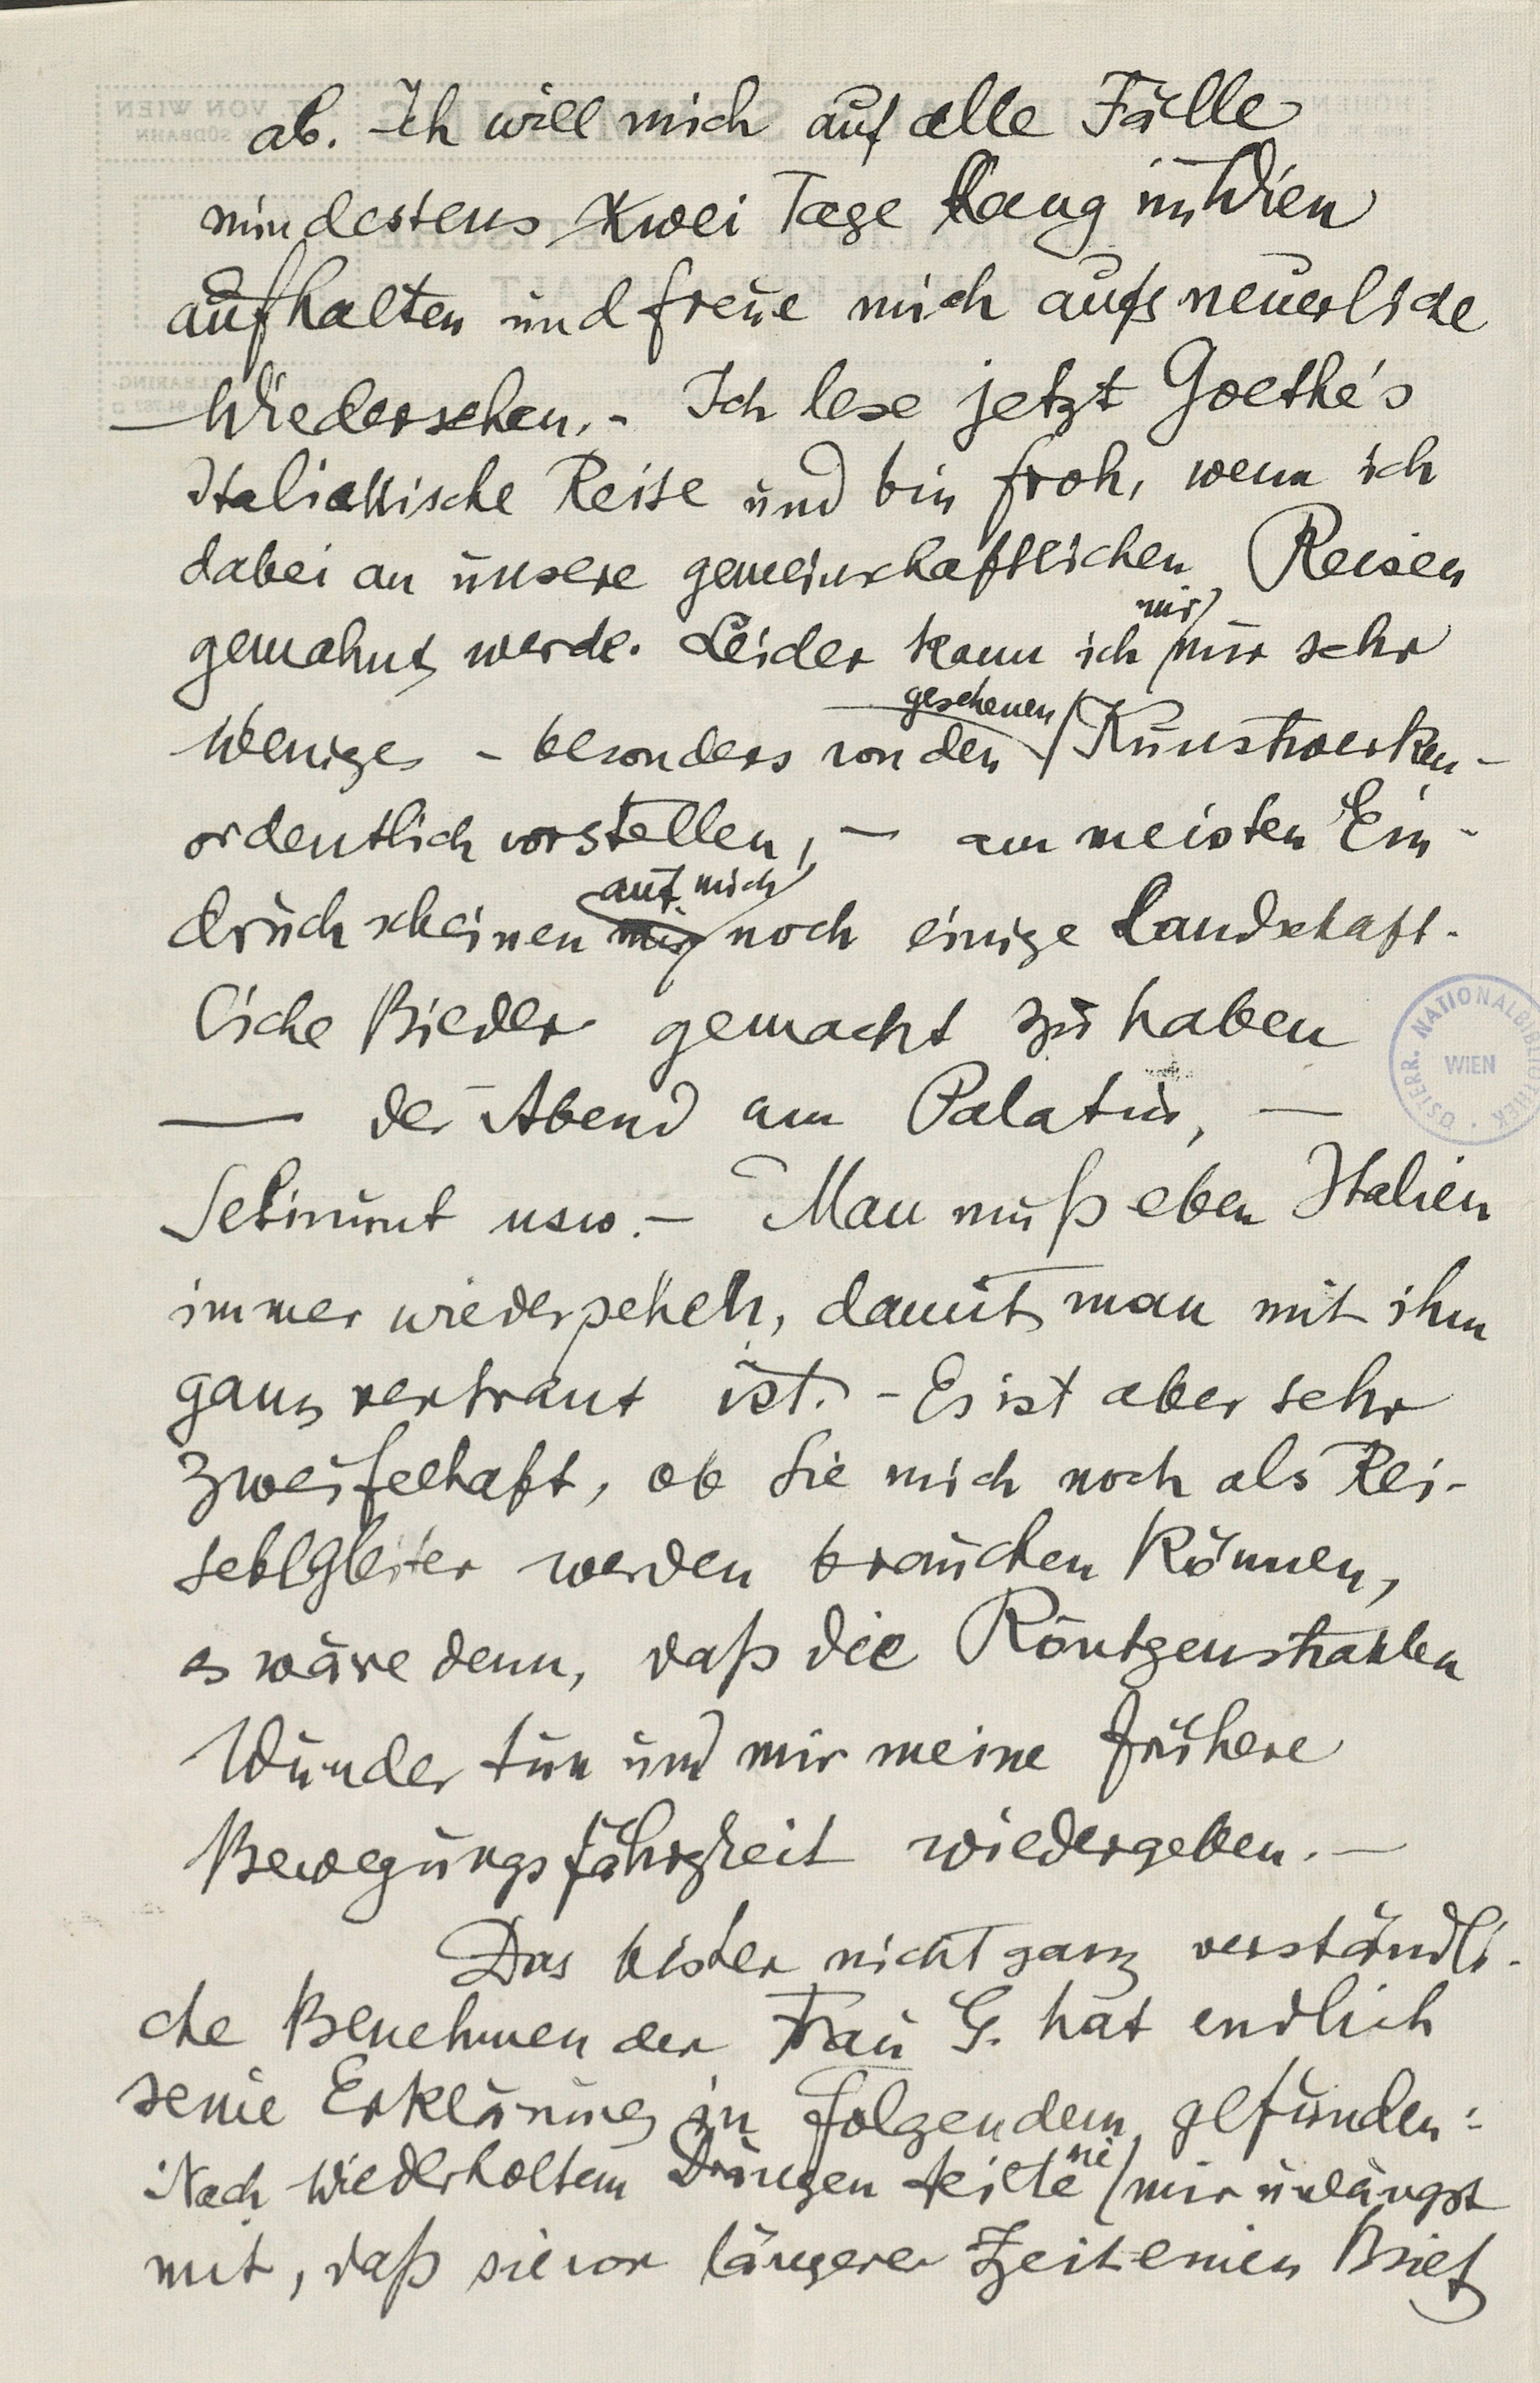 ab. Ich will mich auf alle Fälle
mindestens zwei Tage lang in Wien
aufhalten und freue mich aufs neuerliche
Wiedersehen. - Ich lese jetzt Goethe's
Italienische Reise und bin froh, wenn ich
dabei an unsere gemeinschaftlichen Reisen
gemahnt werde. Leider kann ich mir nur sehr
weniges - besonders von den gesehenen Kunstwerken -
ordentlich vorstellen, - am meisten Ein-
druck scheinen auf mich noch einige landschaft-
liche Bilder gemacht zu haben
— der Abend am Palatin, —
Selinunt usw. - Man muß eben Italien
immer wiedersehen, damit man mit ihm
ganz vertraut ist. - Es ist aber sehr
zweifelhaft, ob Sie mich noch als Rei-
sebegleiter werden brauchen können,
es wäre denn, daß die Röntgenstrahlen
Wunder tun und mir meine frühere
Bewegungsfähigkeit wiedergeben. —
Das bisher nicht ganz verständli-
che Benehmen der Frau G. hat endlich
seine Erklärung in folgendem gefunden:
Nach wiederholtem Drängen teilte sie mir unlängst
mit, daß sie vor längerer Zeit einen Brief
ÖSTERR. NATIONALBIBLIOTHEK
WIEN